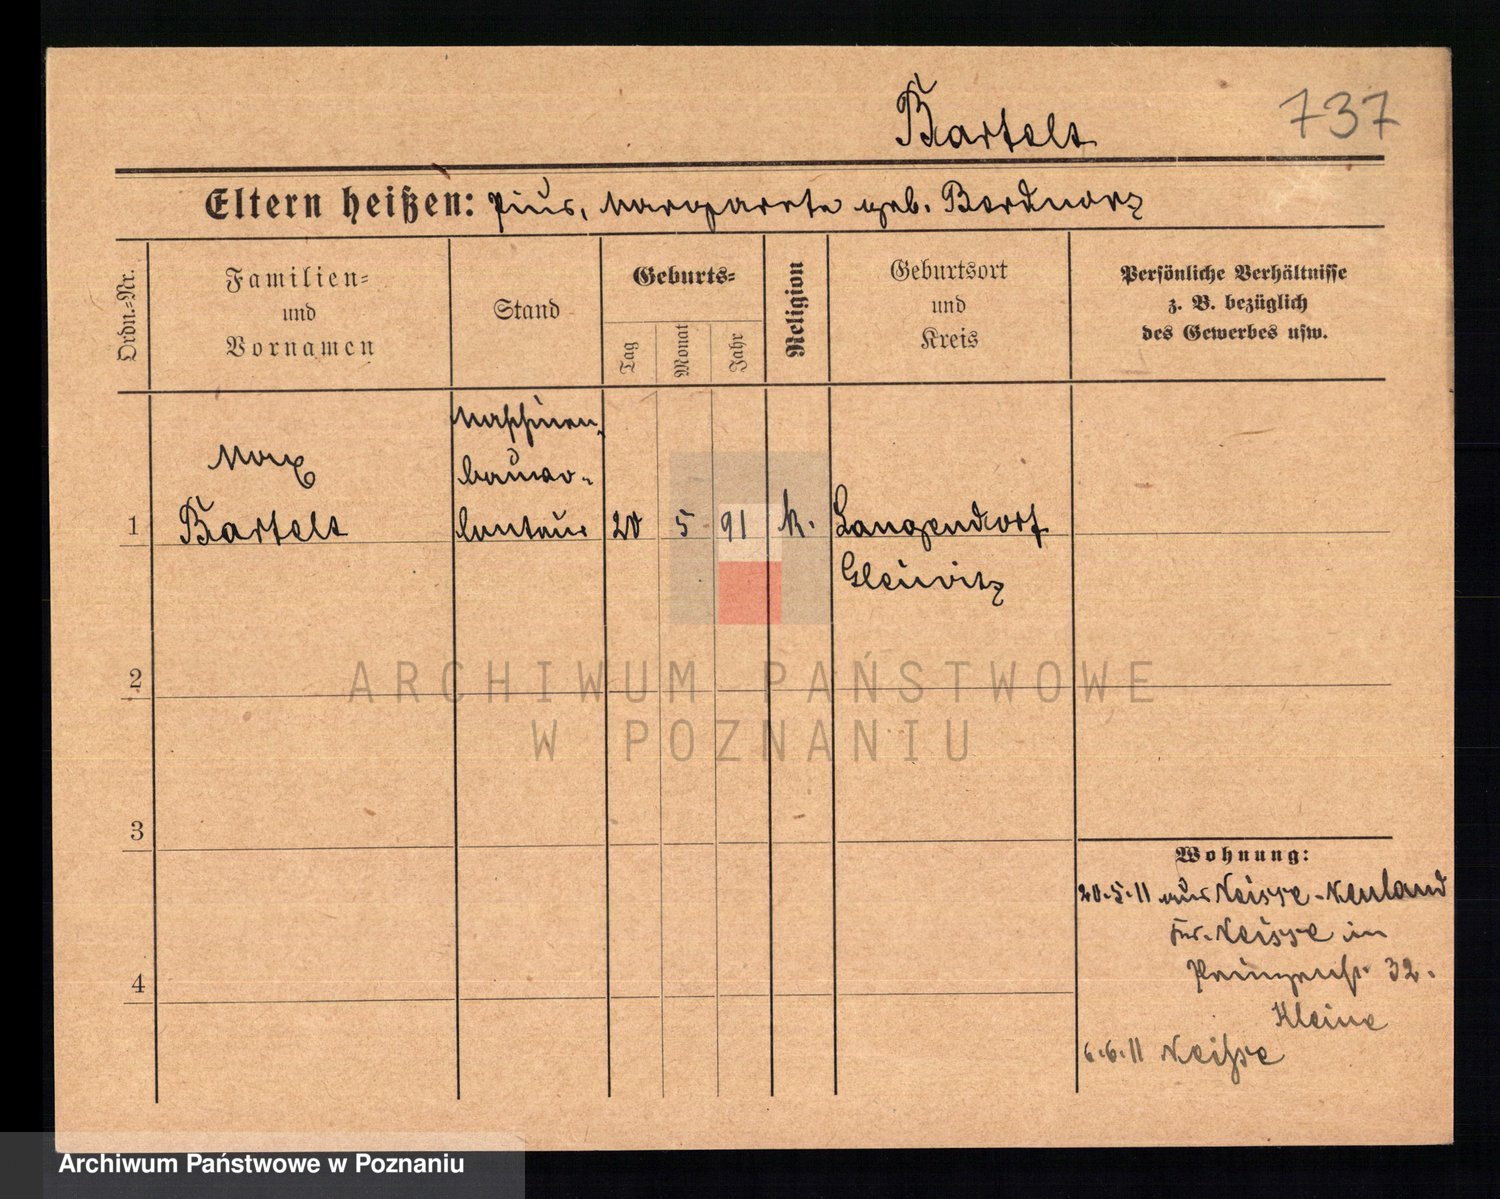 Bartelt
737
Eltern heißen: Pius, Margarete geb. Bednorz
Ordn.-Nr.
Familien-
und
Vornamen
Stand
Geburts-
Tag
Monat
Jahr
Religion
Geburtsort
und
Kreis
Persönliche Verhältnisse
z. B. bezüglich
des Gewerbes usw.
1
Max
Bartelt
Maschinen
bauvo-
lontair
20
5
91
k.
Langendorf
Gleiwitz
2
3
4
Wohnung:
20.5.11 aus Neisse-Neuland
Kr. Neisse in
Prinzenstr. 32.
Kleine
6.6.11 Neisse
ARCHIWUM PAŃSTWOWE
W POZNANIU
Archiwum Państwowe w Poznaniu